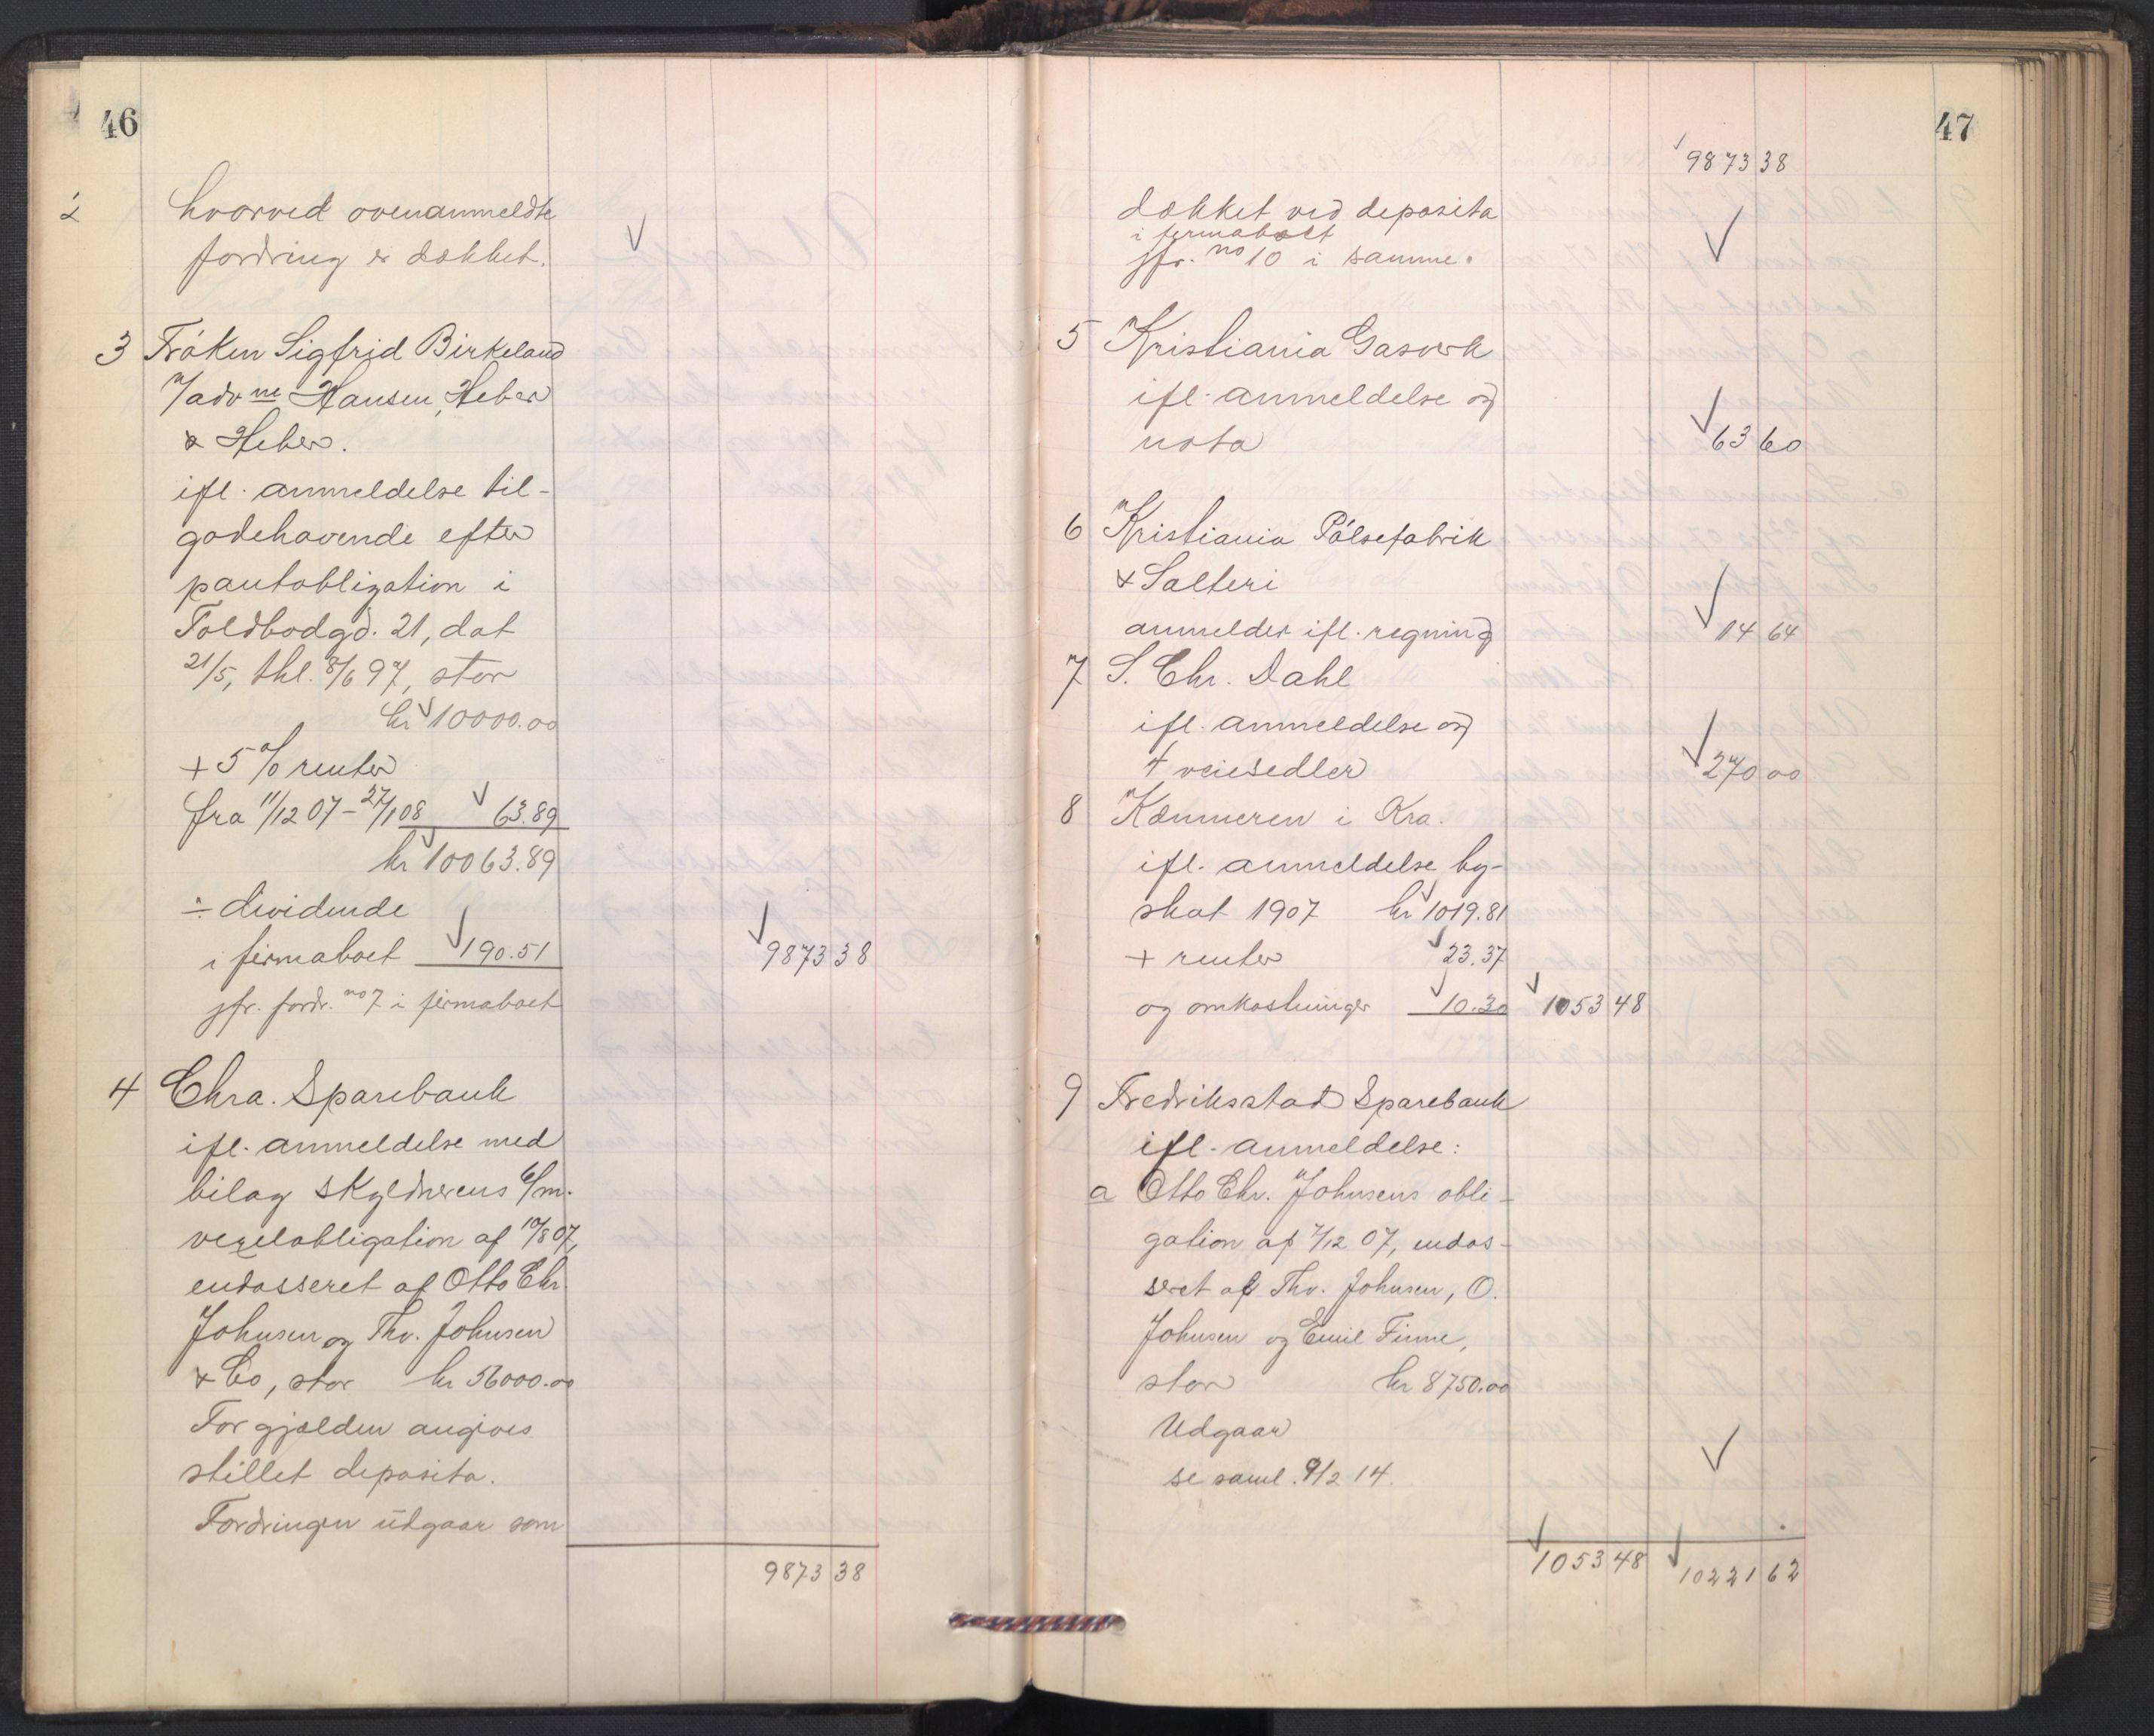 46
2 hvorved ovenanmeldte
fordring er dækket.
3 Frøken Sigfrid Birkeland
v/adv ne Hansen, Heber
& Heber.
ifl. anmeldelse til-
godehavende efter
pantobligation i
Toldbodgd. 21, dat
21/5, thl. 8/6 97, stor
kr 10000.00
+ 5 % renter
fra 11/12 07 - 27/1 08 63.89
kr 10063.89
÷ dividende
i firmaboet 190.51 9873 38
jfr. fordr. no 7 i firmaboet
4 Chra. Sparebank
ifl. anmeldelse med
bilag skyldnerens 6/m.
vexelobligation af 10/8 07,
endosseret af Otto Chr.
Johnsen og Thv. Johnsen
& Co, stor kr 56000.00
For gjælden angives
stillet deposita.
Fordringen udgaar som
9873 38
47
9873 38
dækket ved deposita
i firmaboet
jfr. no 10 i samme.
5 Kristiania Gasverk
ifl. anmeldelse og
nota 63 60
6 Kristiania Pølsefabrik
& Salteri
anmeldes ifl. regning 14 64
7 S. Chr. Dahl
ifl. anmeldelse og
4 veiesedler 270 00
8 Kæmneren i Kra.
ifl. anmeldelse by-
skat 1907 kr 1019.81
+ renter 23.37
og omkostninger 10.30 1053 48
9 Fredriksstad Sparebank
ifl. anmeldelse:
a Otto Chr. Johnsens obli-
gation af 7/12 07, endos-
seret af Thv. Johnsen, O.
Johnsen og Emil Finne,
stor kr 8750.00
Udgaar
se saml. 9/2 14.
1053 48 10221 62